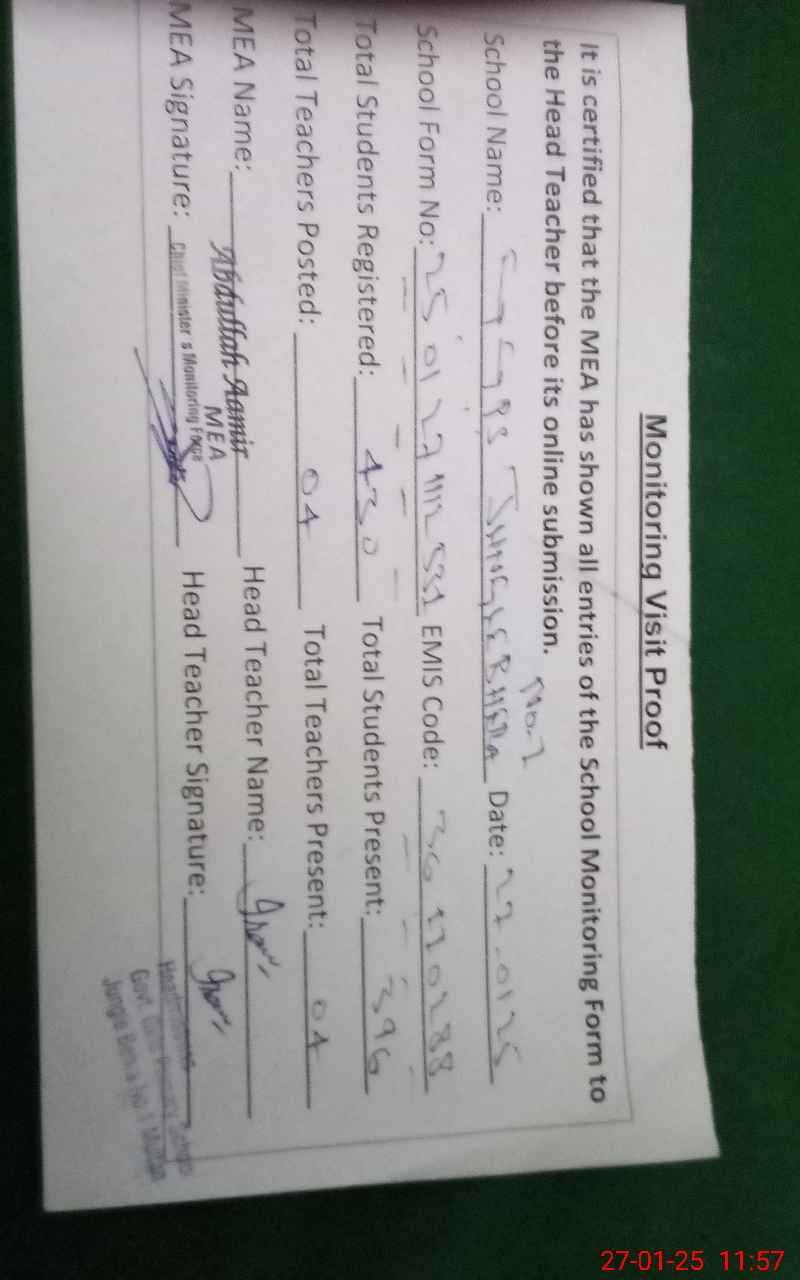 Monitoring Visit Proof
It is certified that the MEA has shown all entries of the School Monitoring Form to
the Head Teacher before its online submission.
School Name: JUNGLE BHERA No.1 Date: 27-01-25
School Form No: 250127 EMIS Code:
Total Students Registered: 430 Total Students Present: 396
Total Teachers Posted: 04 Total Teachers Present: 04
MEA Name: Abdullah Aamir Head Teacher Name:
MEA
MEA Signature: Chief Minister s Monitoring Force Head Teacher Signature:
Govt. Girls Primary School
Jungle Bhera No 1 Multan
27-01-25 11:57